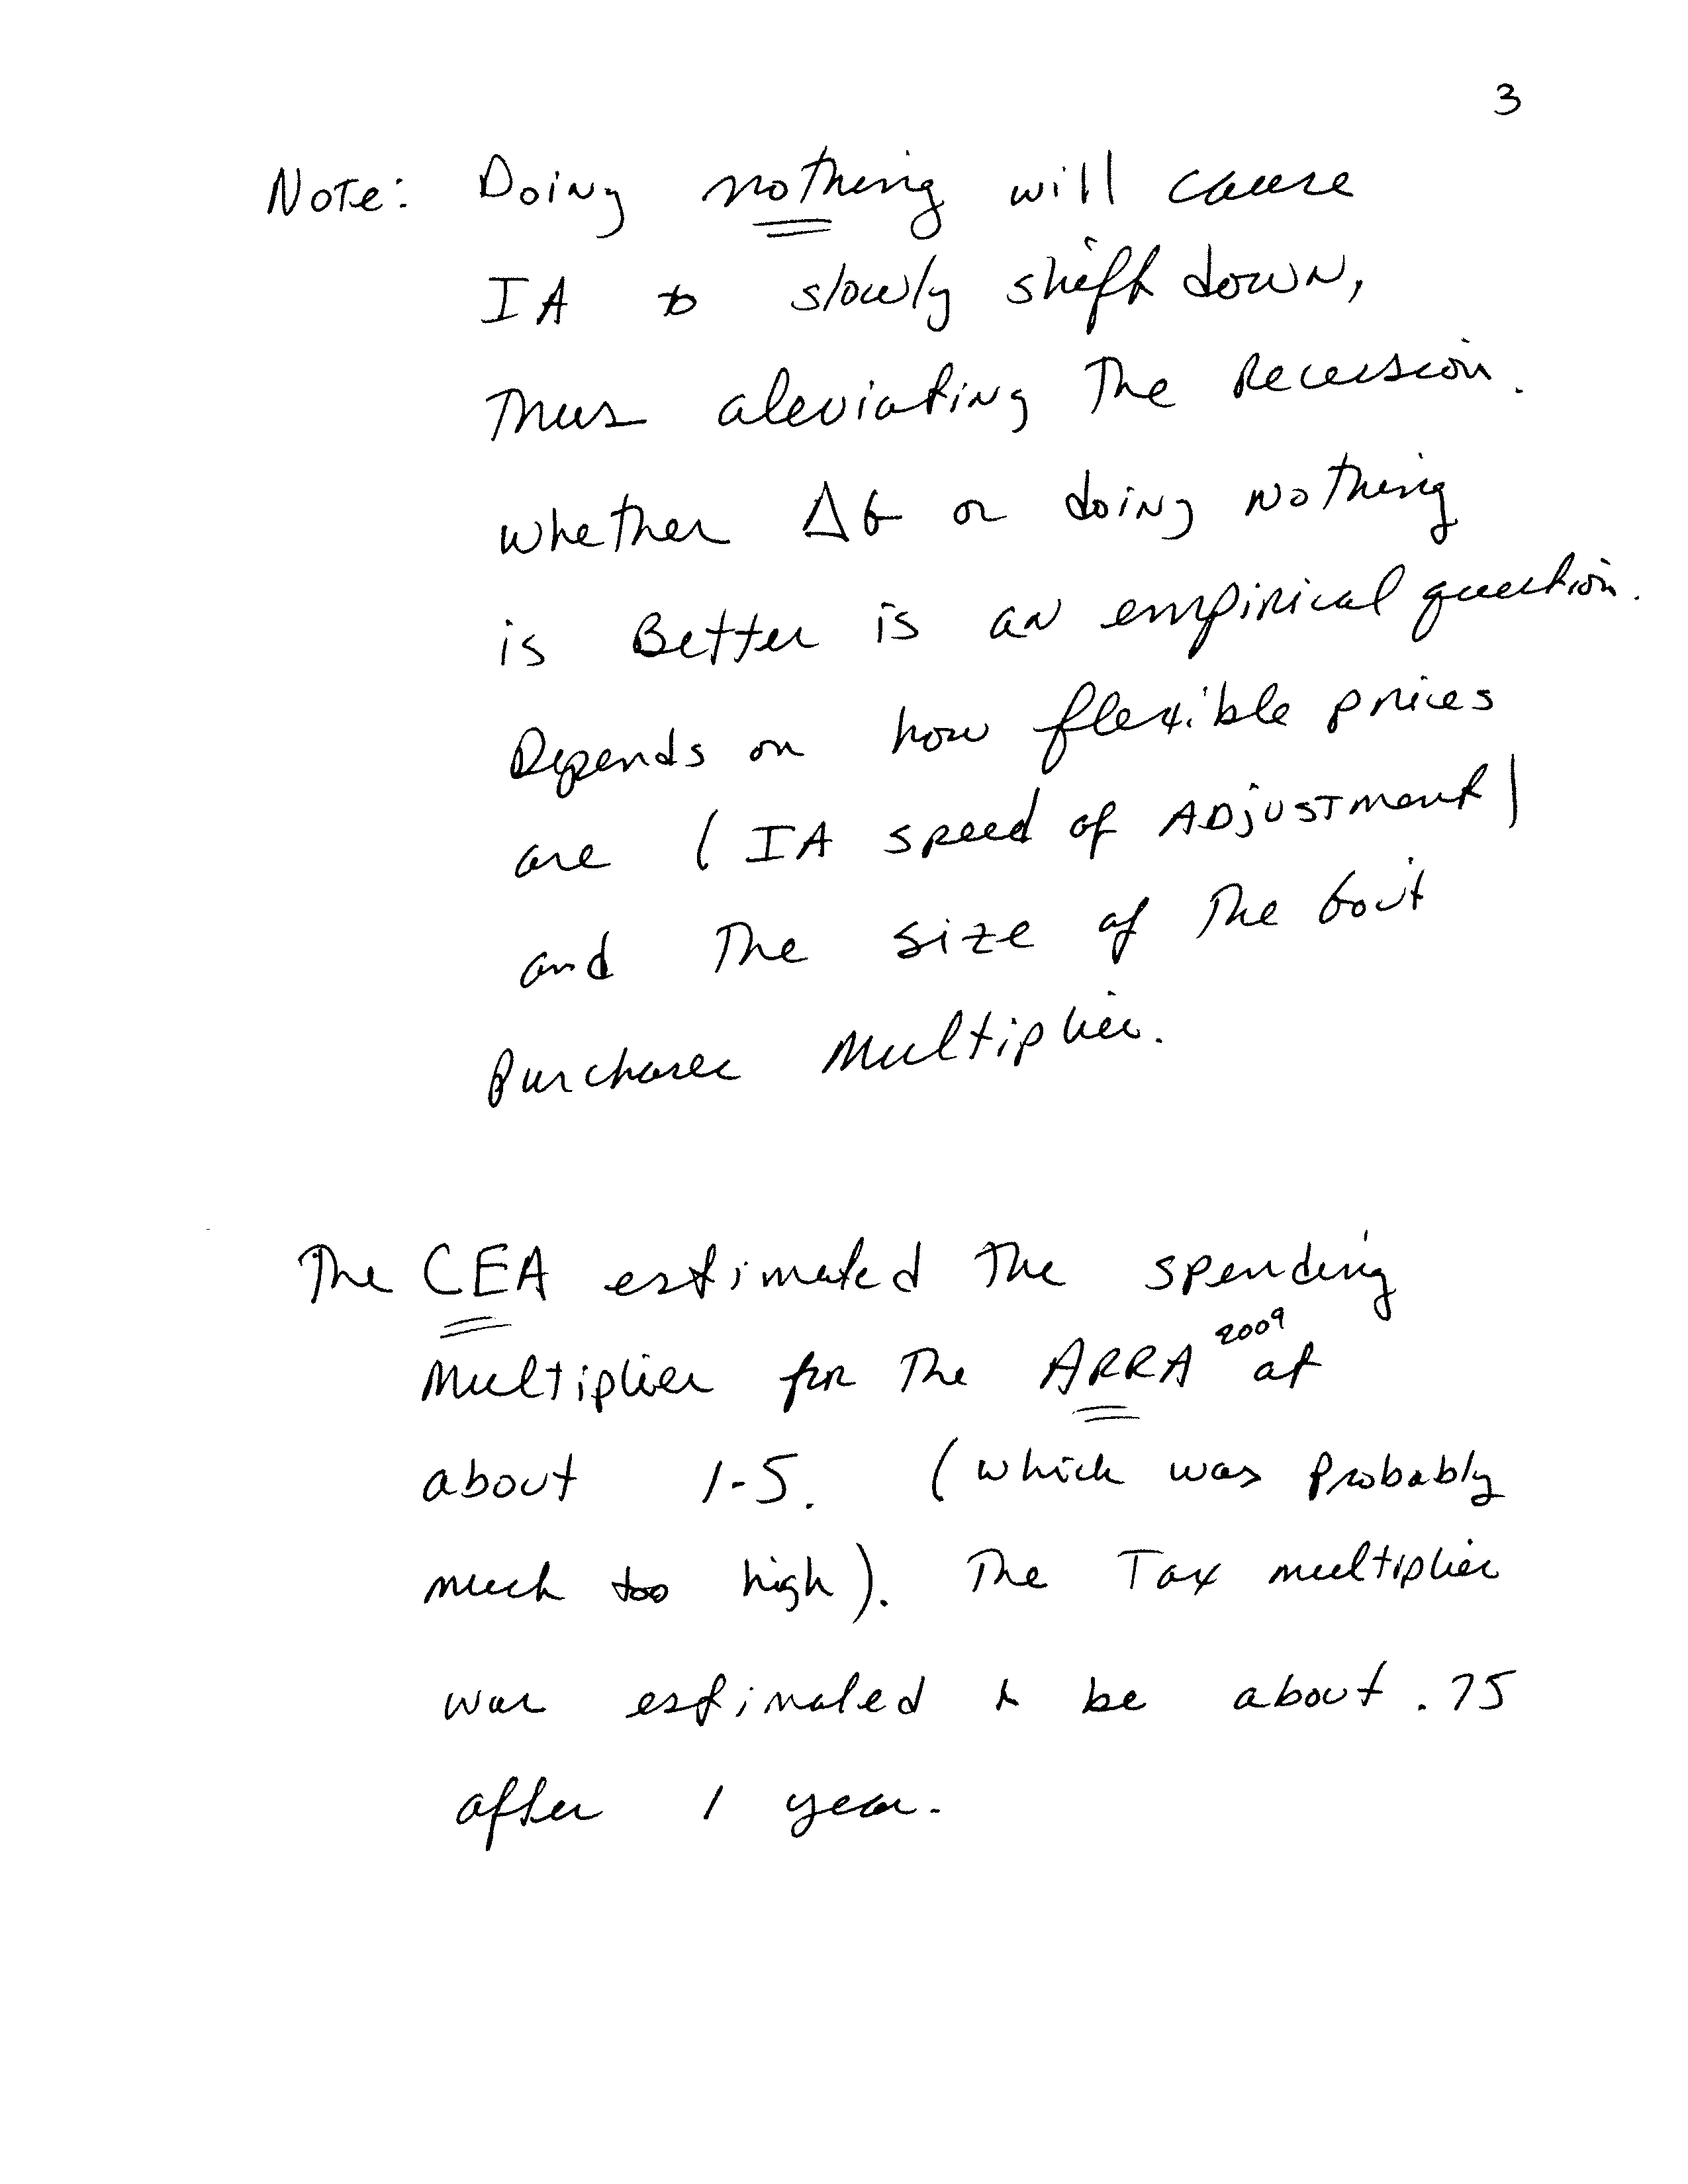 3
Note: Doing nothing will cause
IA to slowly shift down,
Thus aleviating The Recession.
whether ΔG or doing nothing
is Better is an empirical question.
Depends on how flexible prices
are ( IA speed of ADjUSTment)
and The size of The Gov't
purchases Multiplier.
The CEA estimated The spending
Multiplier for The ARRA 2009 at
about 1.5. (which was Probably
much too high). The Tax multiplier
was estimated to be about .75
after 1 year.